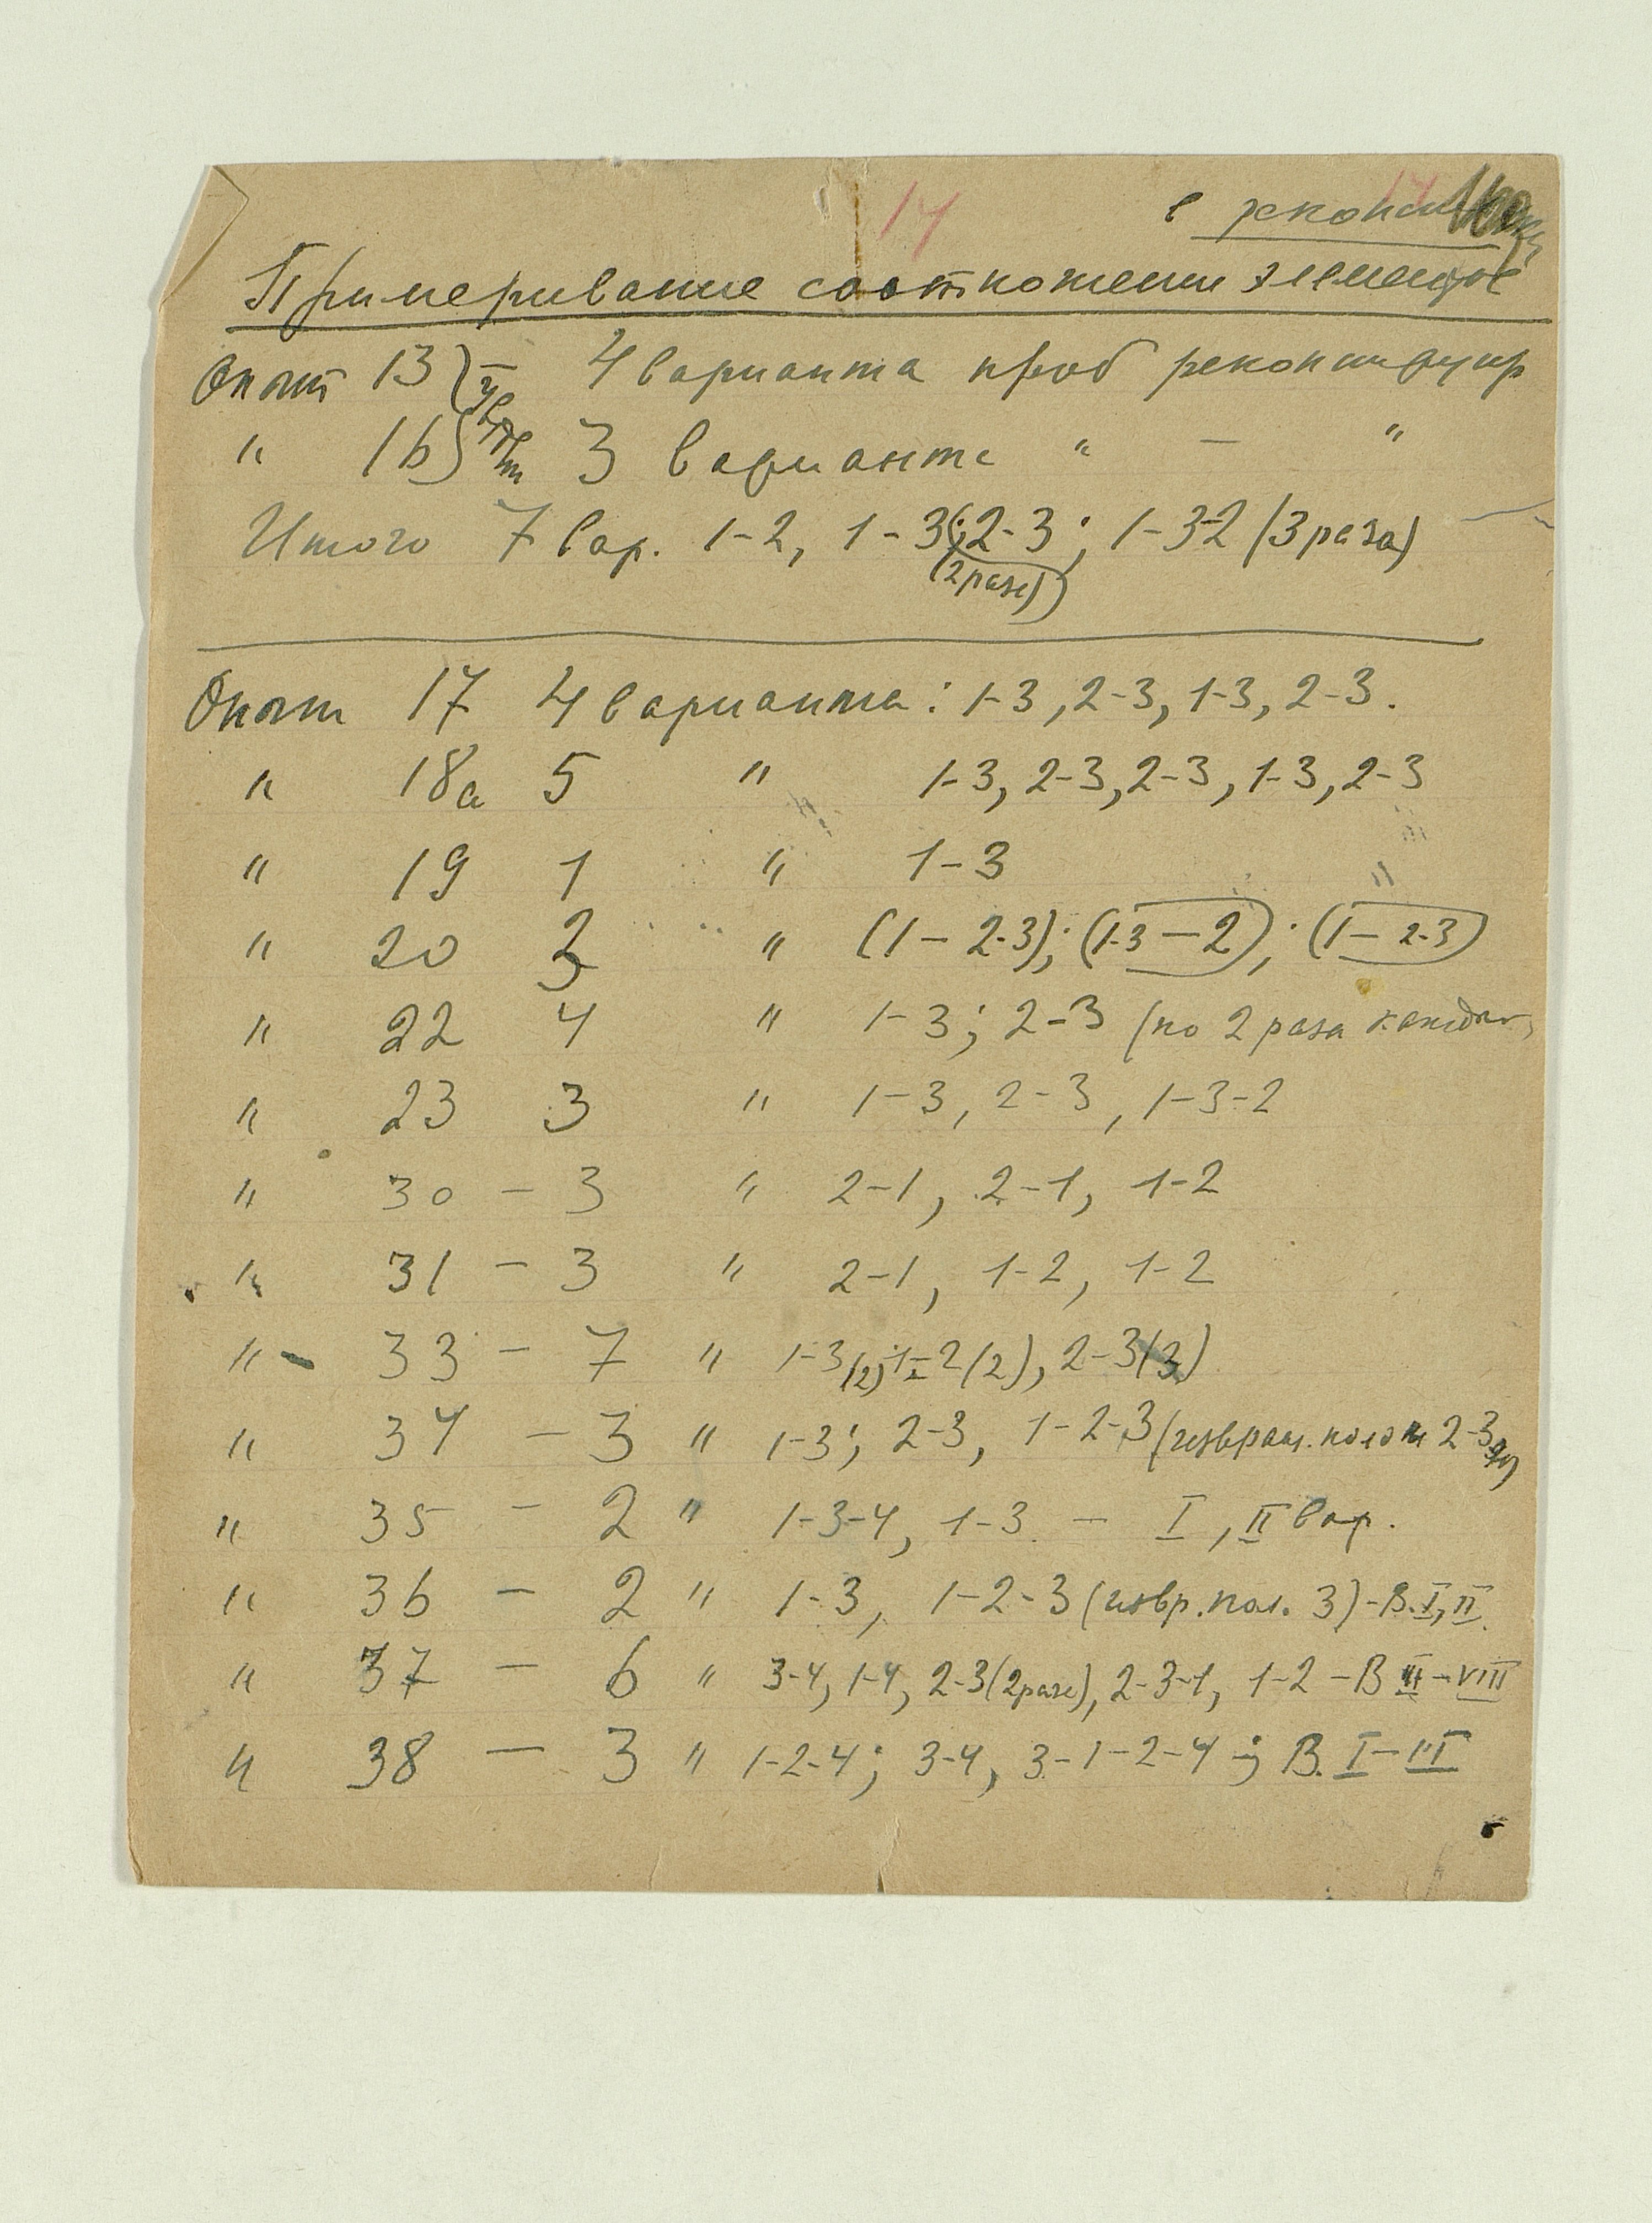 14
в
Примеривание соотношения элементов
Опыт 13 – 4 варианта проб реконструир
" 16 3 варианта " – "
Итого 7 вар. 1-2, 1-3; 2-3; 1-3-2 (3 раза)
(2 раза)
Опыт 17 4 варианта: 1-3, 2-3, 1-3, 2-3.
" 18а 5 " 1-3, 2-3, 2-3, 1-3, 2-3
" 19 1 " 1-3
" 20 3 " (1 – 2-3); (1-3 – 2); (1 – 2-3)
" 22 4 " 1-3; 2-3 (по 2 раза
" 23 3 " 1-3, 2-3, 1-3-2
" 30 – 3 " 2-1, 2-1, 1-2
" 31 – 3 " 2-1, 1-2, 1-2
" 33 – 7 " 1-3 (2) 1-2 (2), 2-3 (3)
" 34 – 3 " 1-3; 2-3, 1-2-3 (извращ. полож 2-3
" 35 – 2 " 1-3-4, 1-3 – I, II вар.
" 36 – 2 " 1-3, 1-2-3 (извр. пол. 3) - В. I, II.
" 37 – 6 " 3-4, 1-4, 2-3 (2 раза), 2-3-1, 1-2 – В – VIII
" 38 – 3 " 1-2-4; 3-4, 3-1-2-4; В. I – III